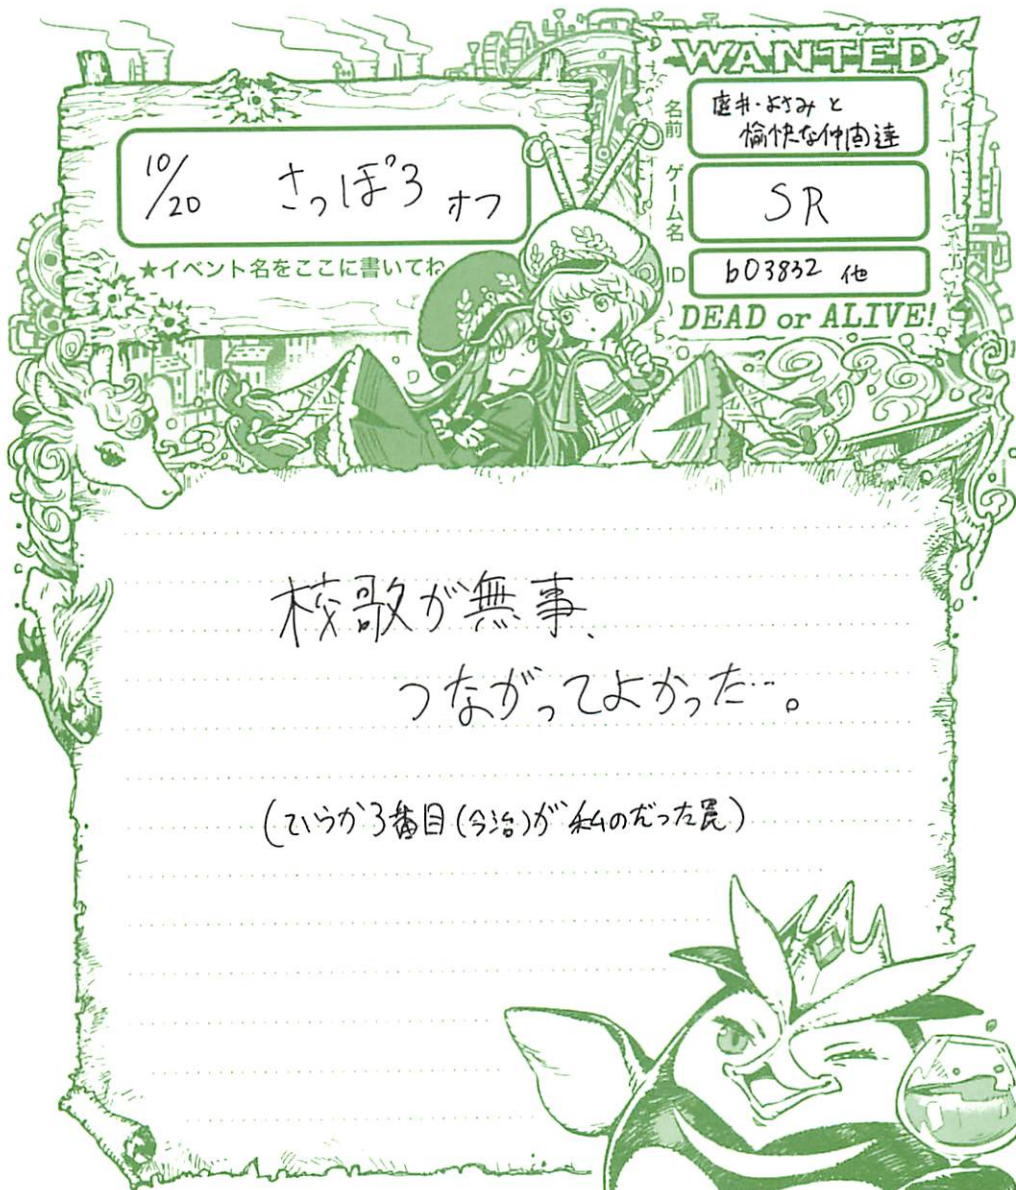 10/20 さっぽろオフ
★イベント名をここに書いてね
WANTED
名前
庭井・よさみと
愉快な仲間達
ゲーム名
SR
ID
b03832 他
DEAD or ALIVE!
校歌が無事、
つながってよかった…。
(ていうか3番目(今治)が私のだった罠)